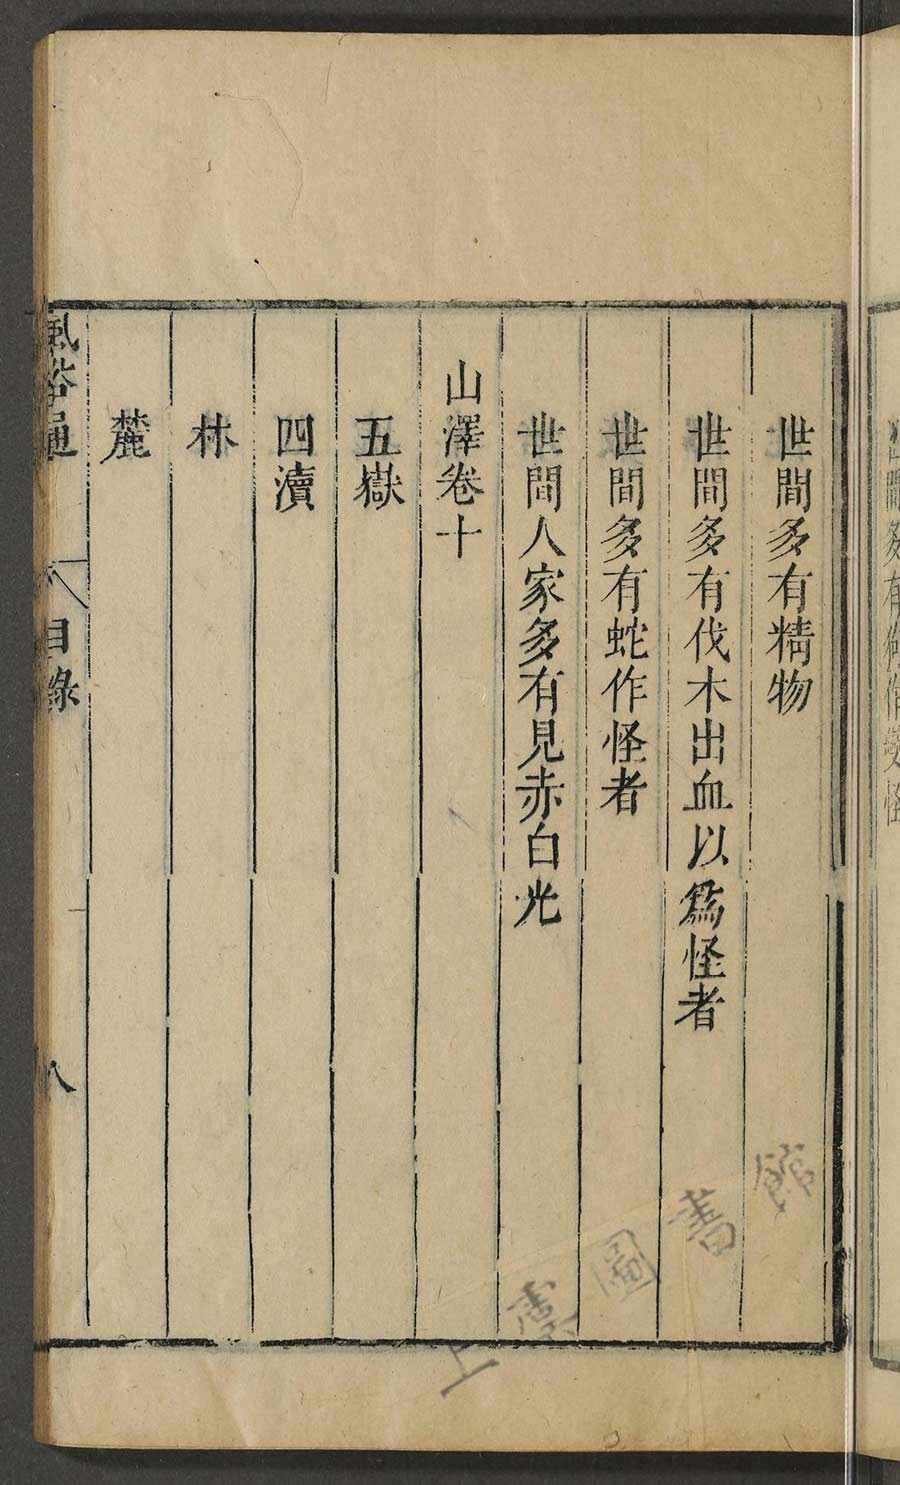 世間多有精物
世間多有伐木出血以爲怪者
世間多有蛇作怪者
世間人家多有見赤白光
山澤卷十
五嶽
四瀆
林
麓
風俗通
目錄
八
上虞圖書館
間多有狗作變怪